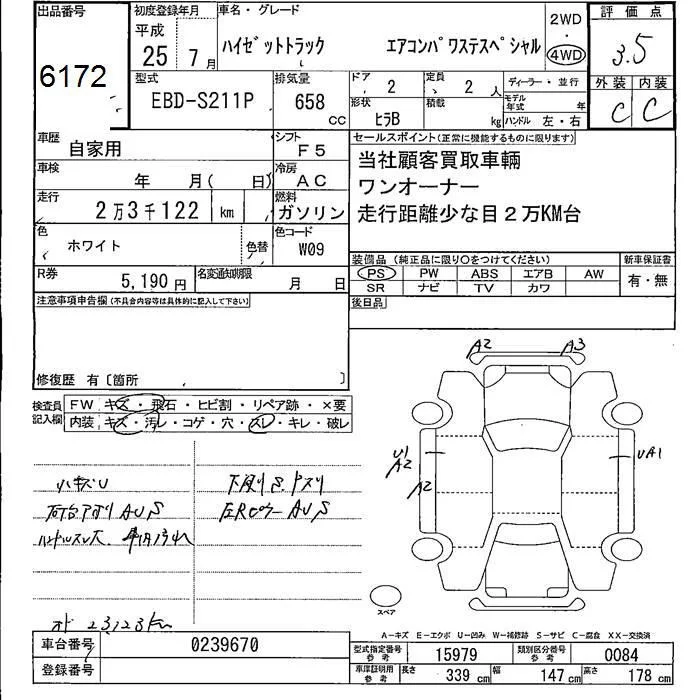 出品番号
6172
初度登録年月
平成
25年 7月
車名・グレード
ハイゼットトラック エアコンパワステスペシャル
2WD
・
4WD
評価点
3.5
外装 内装
C C
型式
EBD-S211P
排気量
658
CC
ドア
2
定員
2人
ディーラー・並行
形状
ヒラB
積載
kg
モデル年式
年
ハンドル 左・右
車歴
自家用
シフト
F5
車検
年 月( 日)
冷房
AC
走行
2万3千122 km
燃料
ガソリン
色
ホワイト
色替
色コード
W09
R券
5,190円
名変通知期限
月 日
セールスポイント(正常に機能するものに限ります)
当社顧客買取車輌
ワンオーナー
走行距離少な目2万KM台
装備品(純正品に限り○をつけてください)
新車保証書
PS PW ABS エアB AW
有・無
SR ナビ TV カワ
後日品
注意事項申告欄(不具合内容等は具体的に記入して下さい)
修復歴 有〔箇所 〕
検査員記入欄
FW キズ・飛石・ヒビ割・リペア跡・×要
内装 キズ・汚レ・コゲ・穴・スレ・キレ・破レ
小キズU
荷台アオリ AUS
ハンドルスレ大
下廻りS
AUS
23,123km
A2 A3
U1
A2
A2
UA1
スペア
A-キズ E-エクボ U-凹み W-補修跡 S-サビ C-腐食 XX-交換済
車台番号
0239670
登録番号
型式指定番号
参考
15979
類別区分番号
参考
0084
車庫証明用
参考
長さ
339cm
幅
147cm
高さ
178cm